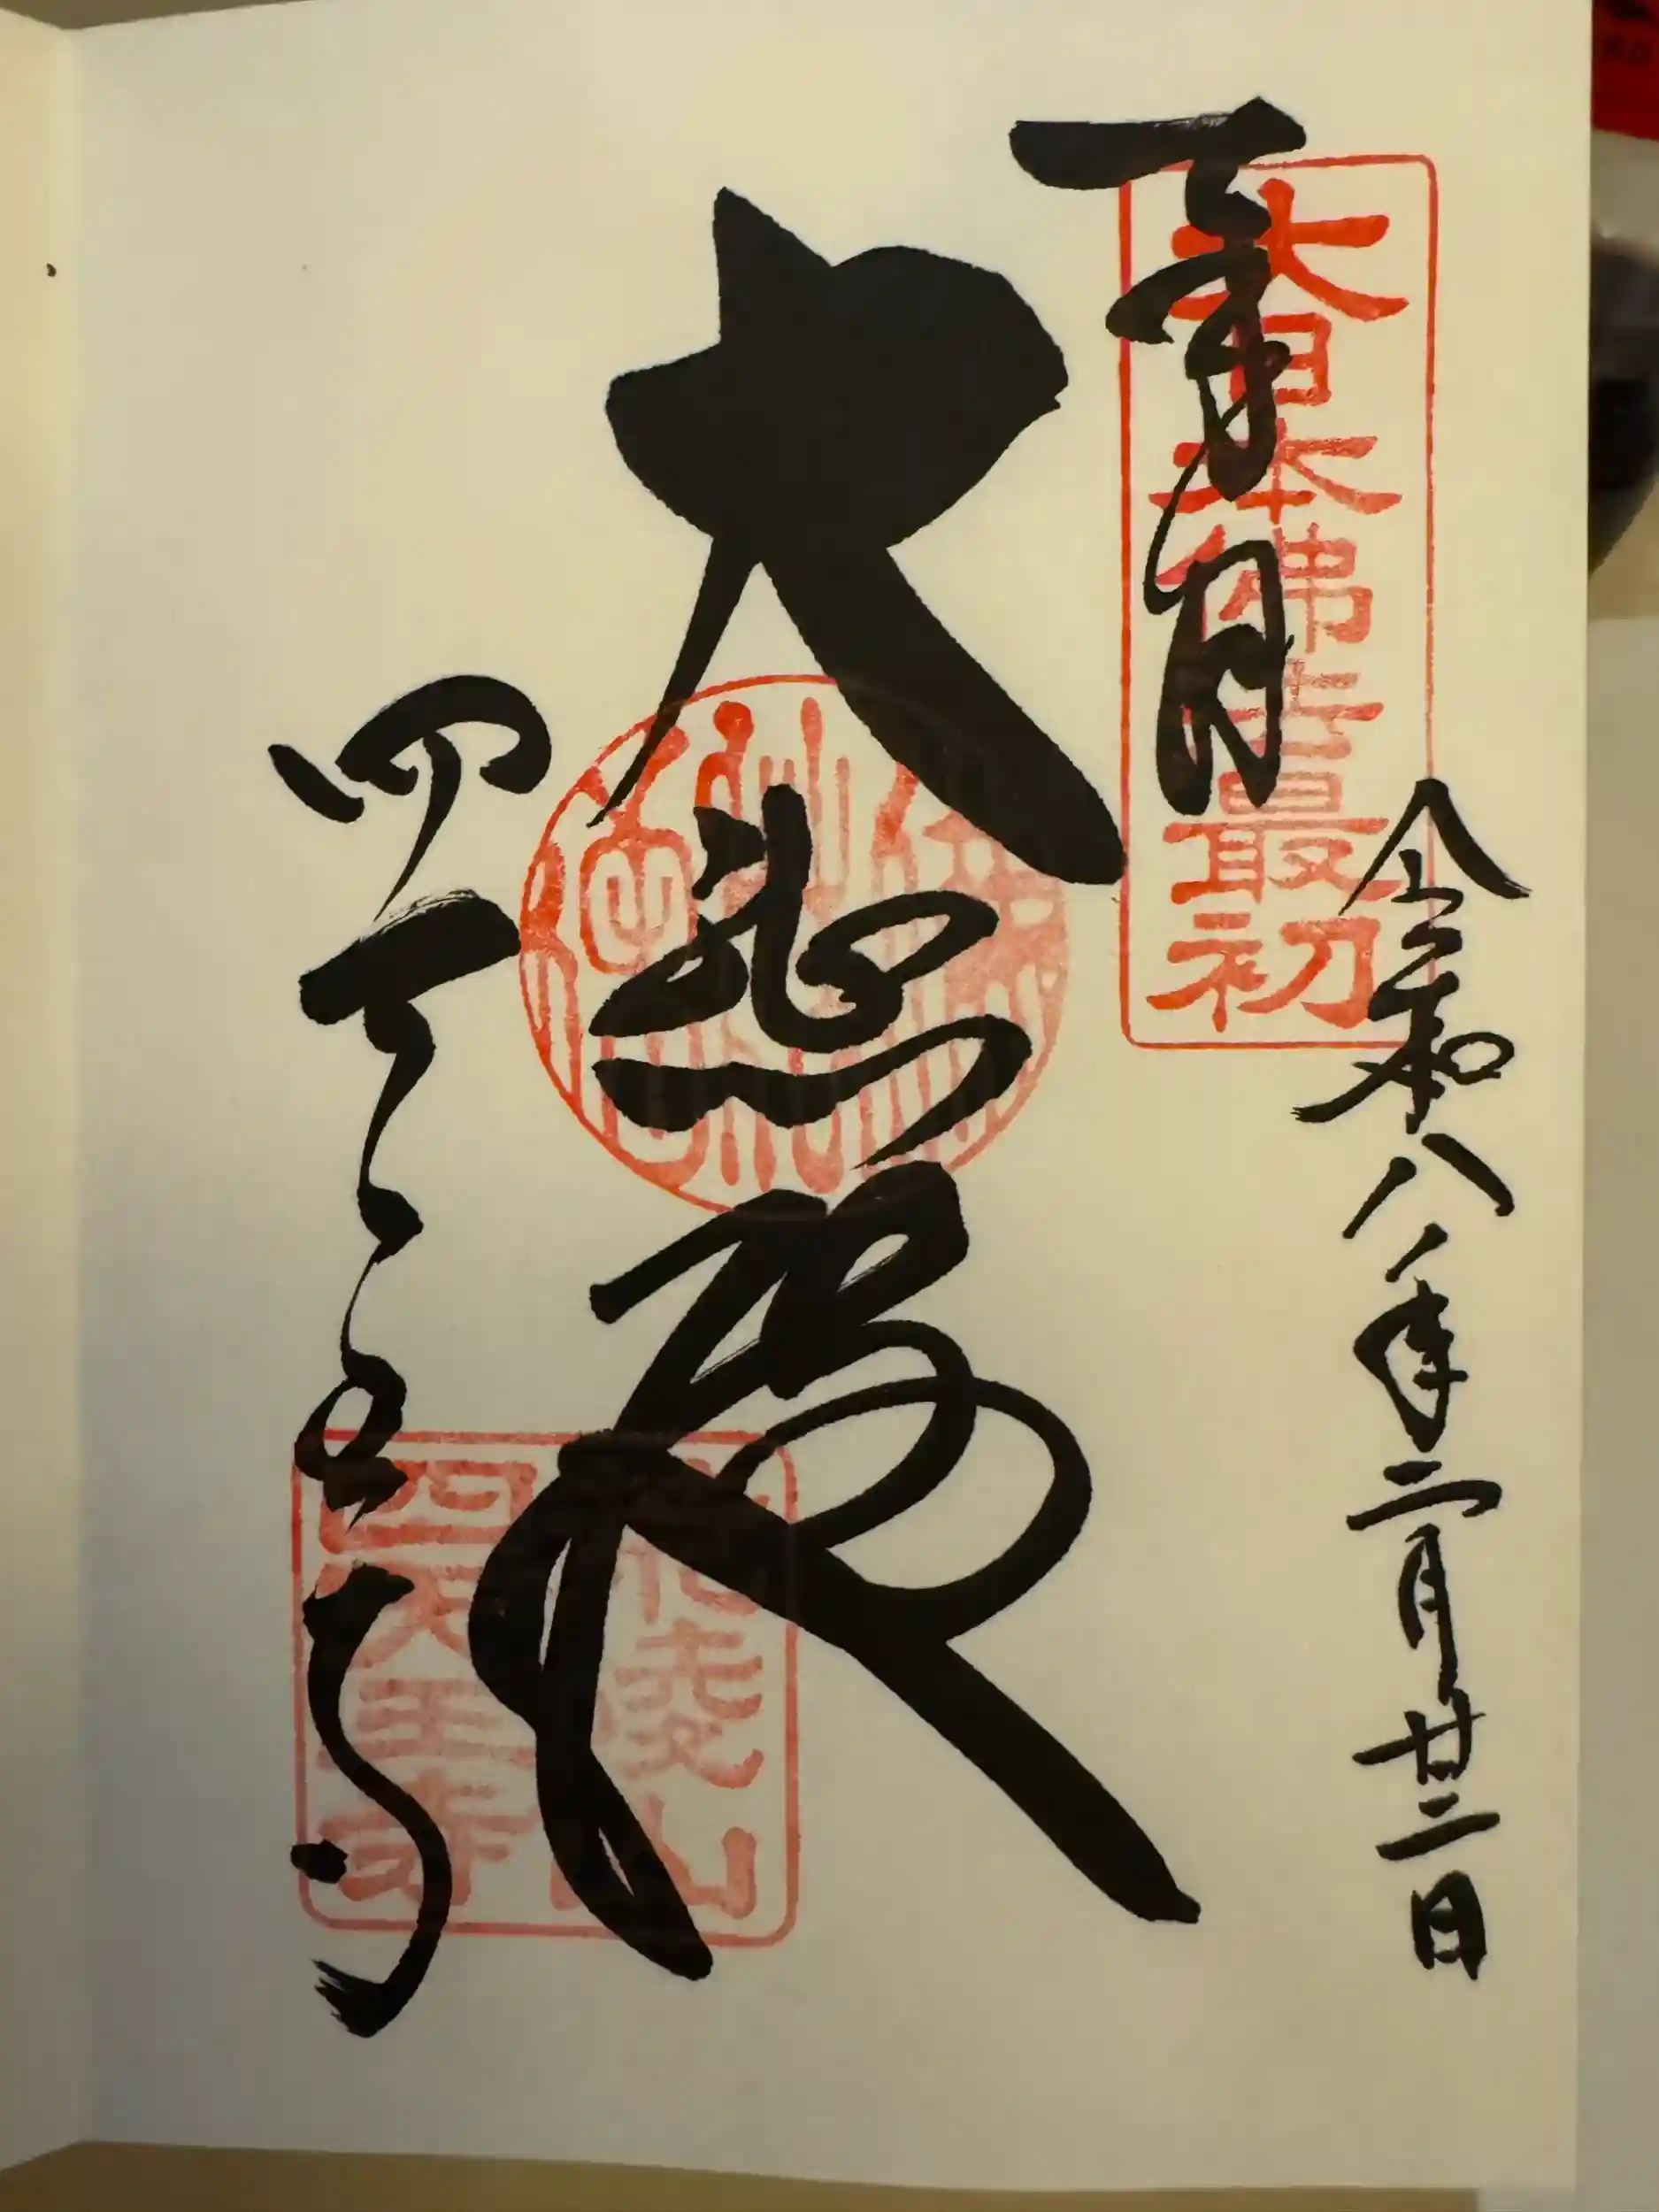 大日本佛法最初
令和八年二月廿二日
大悲殿
四天王寺
荒陵山
四天王寺